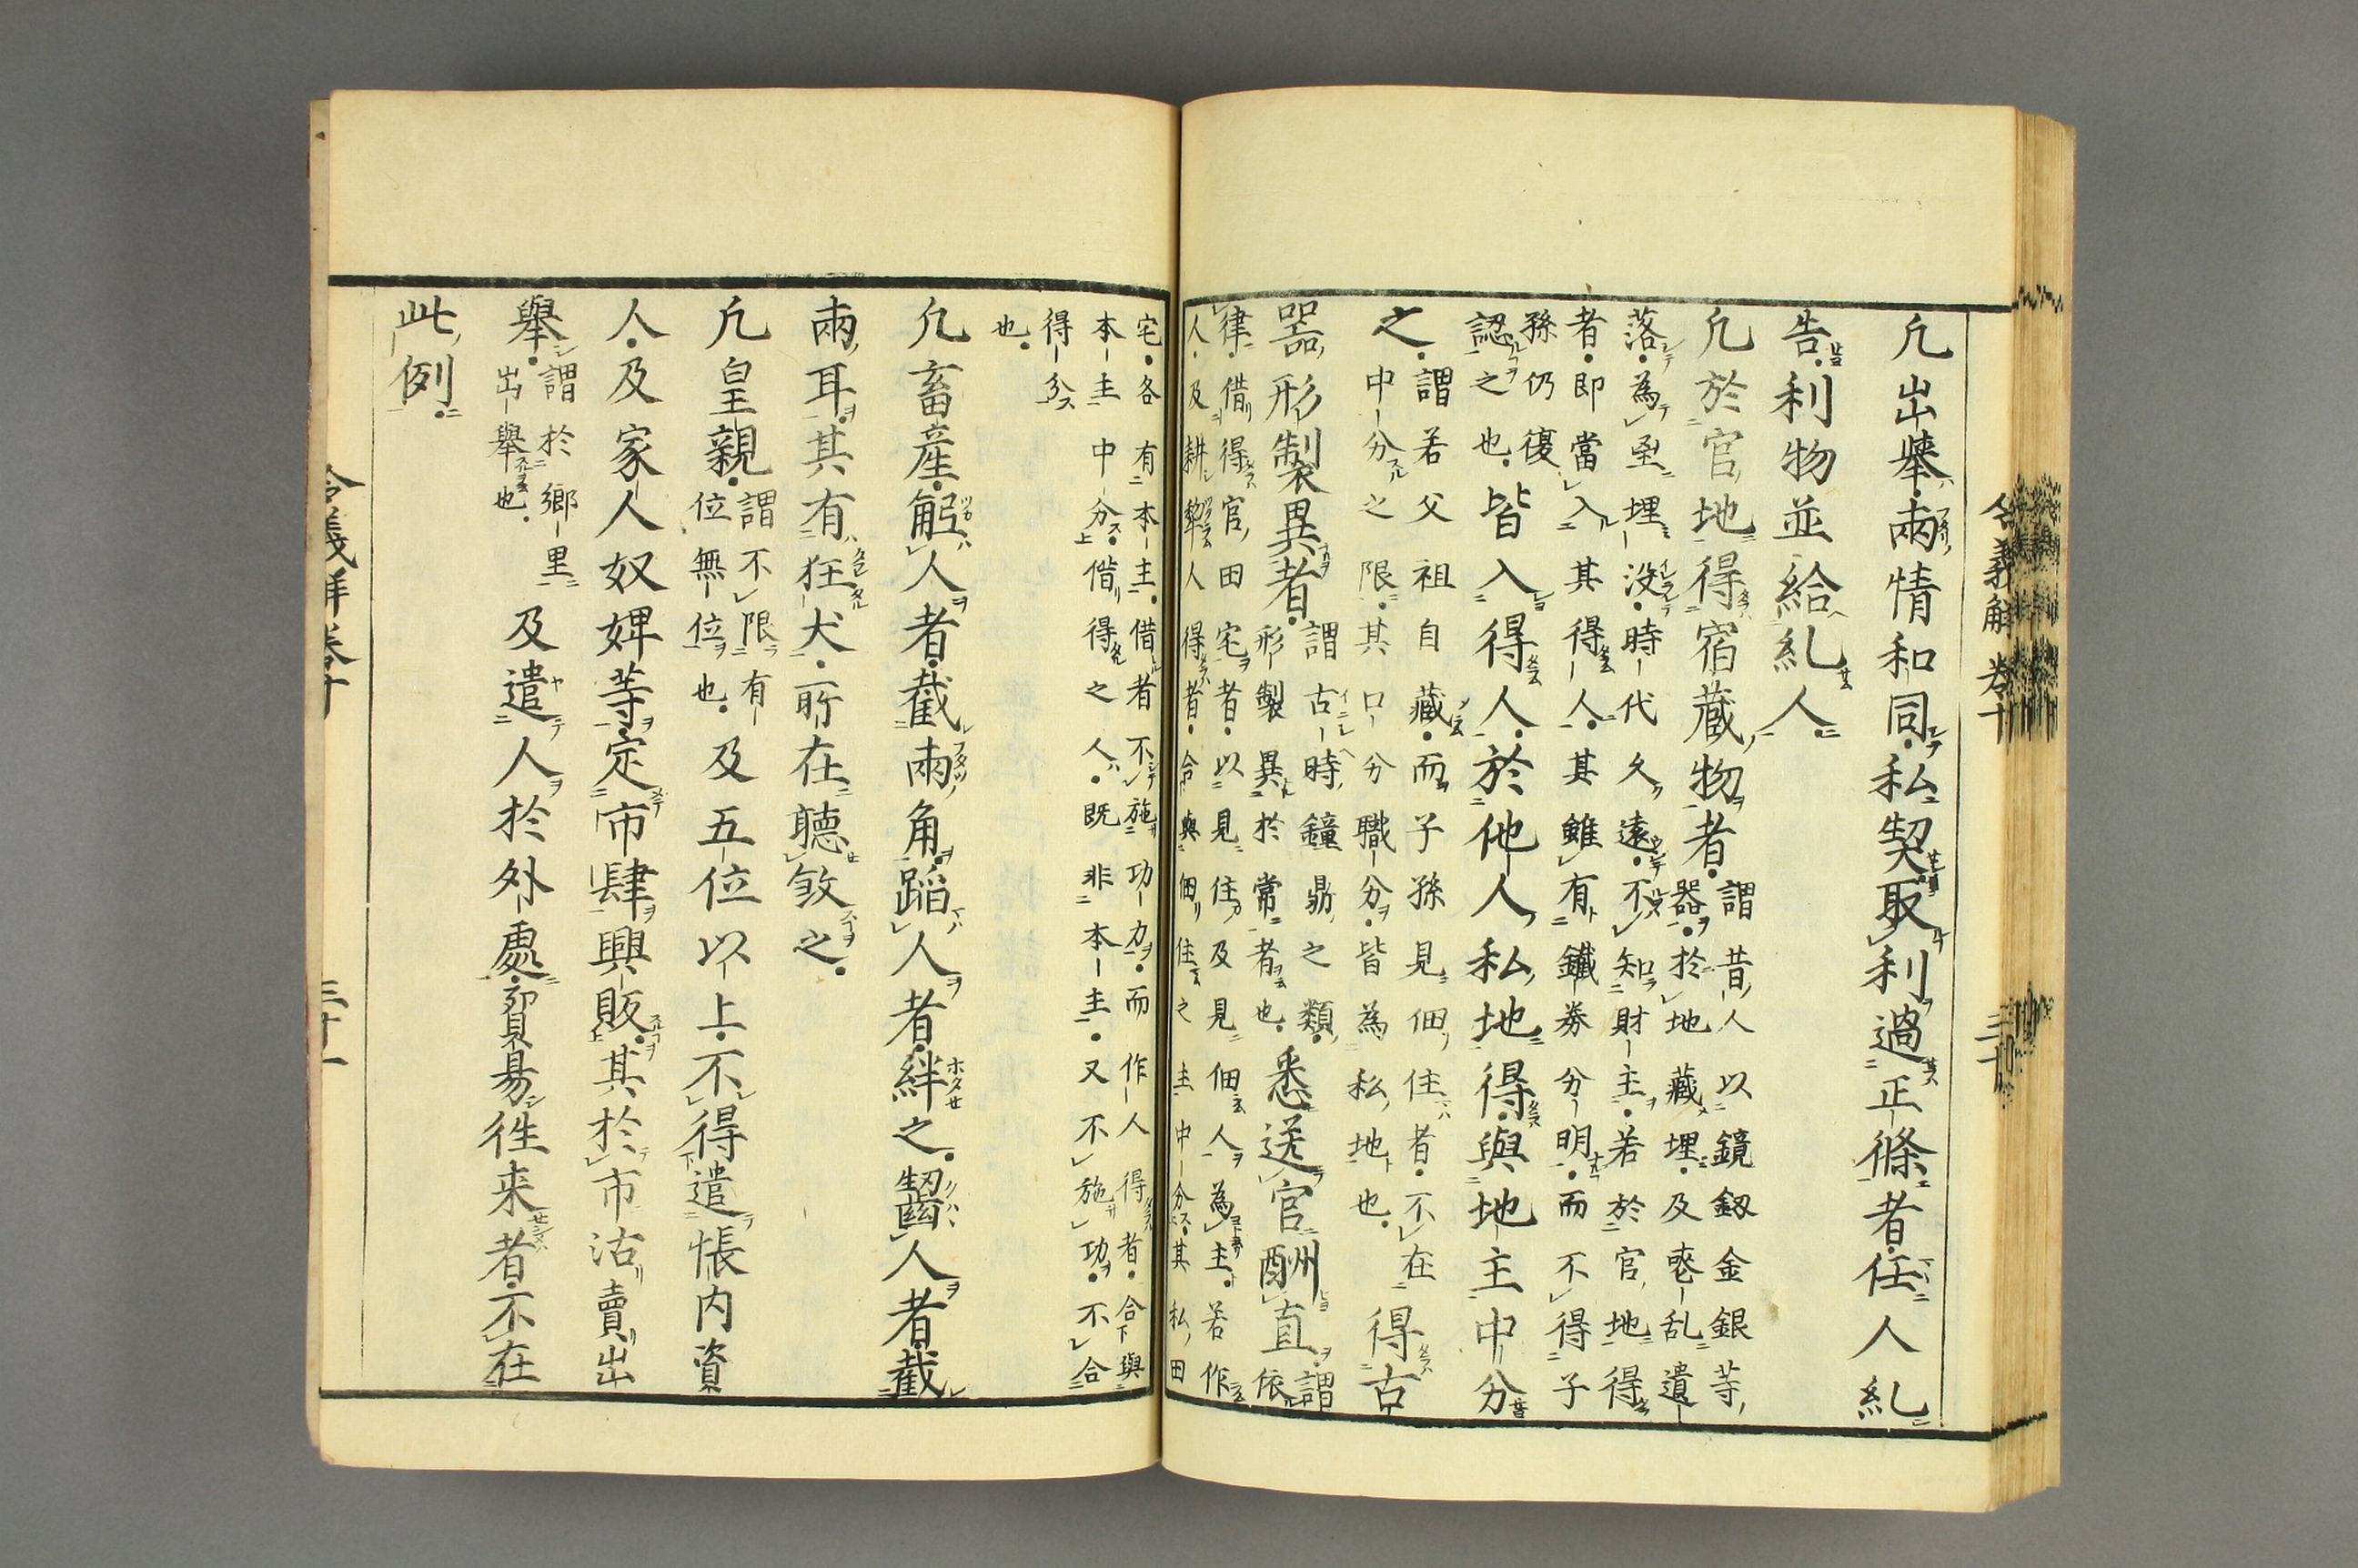 令義解 卷十 三十
凢出擧。兩情和同。私契取利過正條者。任人糺
告。利物並給糺人。
凢於官地得宿藏物者。謂昔人以鏡釼金銀等
器。於地藏埋。及惑乱遺
落。為至埋没。時代久遠。不知財主。若於官地得
者。即當入其得人。其雖有鐵券分明。而不得子
孫仍復
認之也。皆入得人。於他人私地得。與地主中分
之。謂若父祖自藏。而子孫見佃住者。不在
中分之限。其口分職分。皆為私地也。得古
器形製異者。謂古時鐘鼎之類
形製異於常者也。悉送官酬直。謂
依
律。借得官田宅者。以見住及見佃人為主。若作
人。及耕犂人得者。合與佃住之主中分。其私田
宅。各有本主。借者不施功力。而作人得者。合與
本主中分。借得之人。既非本主。又不施功。不合
得分
也。
凢畜産觝人者。截兩角。蹈人者。絆之。齧人者。截
兩耳。其有狂犬。所在聽殺之。
凢皇親。謂不限有
位無位也。及五位以上。不得遣帳内資
人。及家人奴婢等。定市肆興販。其於市沽賣出
擧。謂於鄉里
出擧也。及遣人於外處。貿易往来者。不在
此例。
令義解卷十 三十一